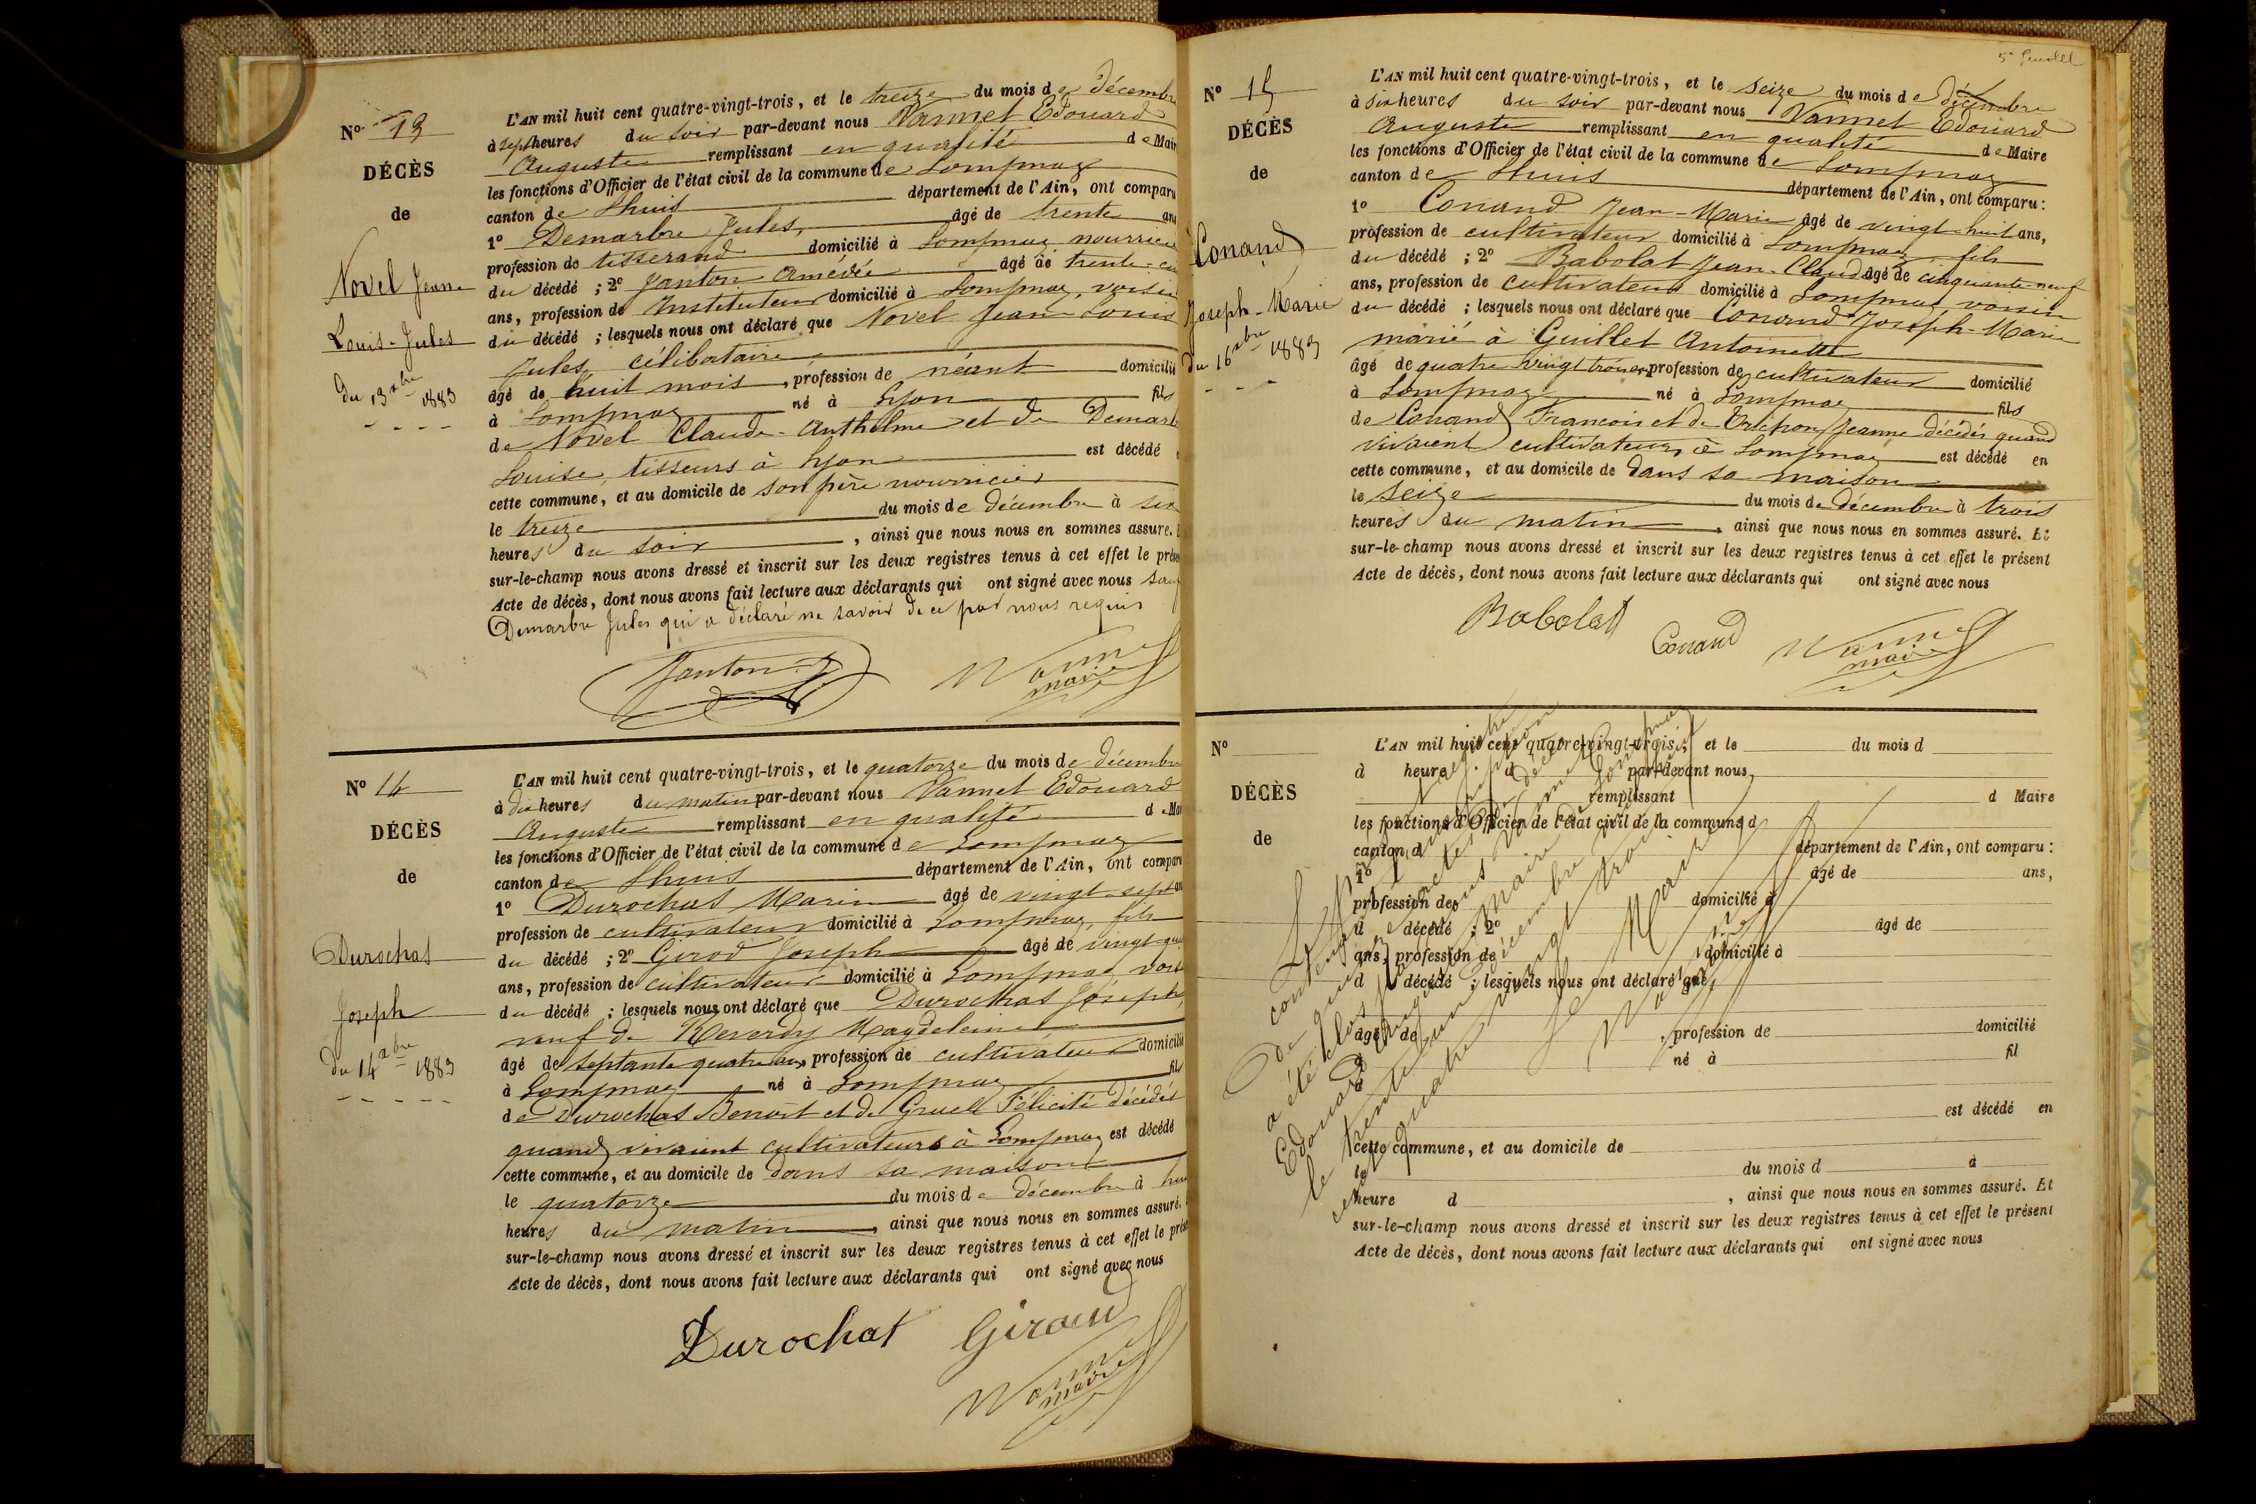 No 13
DÉCÈS
de
Novel Jean
Louis-Jules
du 13 xbre 1883
L'AN mil huit cent quatre-vingt-trois, et le treize du mois de décembre
à sept heures du soir par-devant nous Vannet Edouard
Auguste remplissant en qualité de Mair
les fonctions d'Officier de l'état civil de la commune de Lompnaz
canton de Lhuis département de l'Ain, ont comparu
1o Demarbre Jules, âgé de trente ans
profession de tisserand domicilié à Lompnaz nourricier
du décédé ; 2o Janton Amédée âgé de trente
ans, profession de Instituteur domicilié à Lompnaz, voisin
du décédé ; lesquels nous ont déclaré que Novel Jean-Louis
Jules, célibataire
âgé de huit mois, profession de néant domicilié
à Lompnaz né à Lyon fils
de Novel Claude-Anthelme et de Demarb
Louise, tisseurs à Lyon est décédé
cette commune, et au domicile de son père nourricier
le treize du mois de décembre à six
heures du soir, ainsi que nous nous en sommes assuré.
sur-le-champ nous avons dressé et inscrit sur les deux registres tenus à cet effet le prés
Acte de décès, dont nous avons fait lecture aux déclarants qui ont signé avec nous sauf
Demarbre Jules qui a déclaré ne savoir de ce par nous requis
Janton
Vannet
maire
No 14
DÉCÈS
de
Durochat
Joseph
du 14 xbre 1883
L'AN mil huit cent quatre-vingt-trois, et le quatorze du mois de décembre
à dix heures du matin par-devant nous Vannet Edouard
Auguste remplissant en qualité de Mai
les fonctions d'Officier de l'état civil de la commune de Lompnaz
canton de Lhuis département de l'Ain, ont comparu
1o Durochat Marin âgé de vingt-sept ans
profession de cultivateur domicilié à Lompnaz, fils
du décédé ; 2o Girod Joseph âgé de vingt-
ans, profession de cultivateur domicilié à Lompnaz vois
du décédé ; lesquels nous ont déclaré que Durochat Joseph,
veuf de Reverdy Magdeleine
âgé de septante quatre ans, profession de cultivateur domicilié
à Lompnaz né à Lompnaz fils
de Durochat Benoit et de Gruell Félicité décédés
quand vivaient cultivateurs à Lompnaz est décédé
cette commune, et au domicile de dans sa maison
le quatorze du mois de décembre à hui
heures du matin, ainsi que nous nous en sommes assuré.
sur-le-champ nous avons dressé et inscrit sur les deux registres tenus à cet effet le prés
Acte de décès, dont nous avons fait lecture aux déclarants qui ont signé avec nous
Durochat Giraud
Vannet
maire
No 15
DÉCÈS
de
Conand
Joseph-Marie
du 16 xbre 1883
L'AN mil huit cent quatre-vingt-trois, et le seize du mois de décembre
à six heures du soir par-devant nous Vannet Edouard
Auguste remplissant en qualité de Maire
les fonctions d'Officier de l'état civil de la commune de Lompnaz
canton de Lhuis département de l'Ain, ont comparu :
1o Conand Jean-Marie âgé de vingt-huit ans,
profession de cultivateur domicilié à Lompnaz, fils
du décédé ; 2o Babolat Jean-Claude âgé de cinquante-neuf
ans, profession de cultivateur domicilié à Lompnaz voisin
du décédé ; lesquels nous ont déclaré que Conand Joseph-Marie
marié à Guillet Antoinette
âgé de quatre vingt trois ans, profession de cultivateur domicilié
à Lompnaz né à Lompnaz fils
de Conand François et de Jeanne décédés quand
vivaient cultivateurs à Lompnaz est décédé en
cette commune, et au domicile de dans sa maison
le seize du mois de décembre à trois
heures du matin, ainsi que nous nous en sommes assuré. Et
sur-le-champ nous avons dressé et inscrit sur les deux registres tenus à cet effet le présent
Acte de décès, dont nous avons fait lecture aux déclarants qui ont signé avec nous
Babolat
Conand
Vannet
maire
No
DÉCÈS
de
L'AN mil huit cent quatre-vingt-trois, et le du mois d
à heure d par-devant nous,
remplissant d Maire
les fonctions d'Officier de l'état civil de la commune d
canton d département de l'Ain, ont comparu :
1o âgé de ans,
profession de domicilié à
d décédé ; 2o âgé de
ans, profession de domicilié à
d décédé ; lesquels nous ont déclaré que
âgé de , profession de domicilié
à né à fil
d
est décédé en
cette commune, et au domicile de
le du mois d à
heure d , ainsi que nous nous en sommes assuré. Et
sur-le-champ nous avons dressé et inscrit sur les deux registres tenus à cet effet le présent
Acte de décès, dont nous avons fait lecture aux déclarants qui ont signé avec nous
Le présent registre
contenant
de quinze actes de décès
a été clos par nous Vannet
Edouard Auguste maire de Lompnaz
le trente un décembre mil huit
cent quatre vingt trois
Le Maire
Vannet